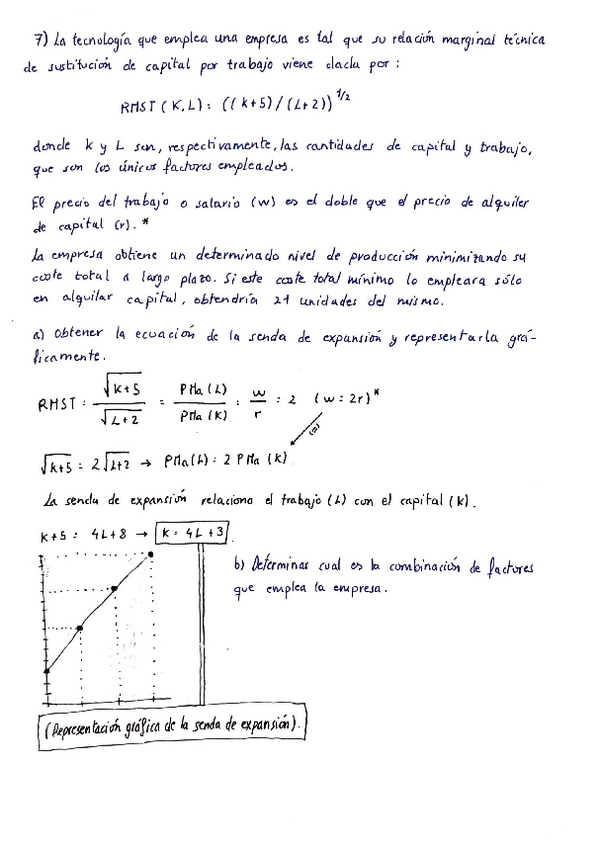 7) La tecnología que emplea una empresa es tal que su relación marginal técnica
de sustitución de capital por trabajo viene dada por :
RMST (K,L): ((k+5)/(L+2))^1/2
donde k y L son, respectivamente, las cantidades de capital y trabajo,
que son los únicos factores empleados.
El precio del trabajo o salario (w) es el doble que el precio de alquiler
de capital (r). *
La empresa obtiene un determinado nivel de producción minimizando su
coste total a largo plazo. Si este coste total mínimo lo empleara sólo
en alquilar capital, obtendría 21 unidades del mismo.
a) Obtener la ecuación de la senda de expansión y representarla grá-
ficamente.
RMST : √k+5 / √L+2 = PMa (L) / PMa (K) = w / r : 2 (w : 2r)*
√k+5 = 2√L+2 → PMa(L): 2 PMa (k)
La senda de expansión relaciona el trabajo (L) con el capital (k).
k+5 : 4L+8 → k : 4L+3
b) Determinar cual es la combinación de factores
que emplea la empresa.
(Representación gráfica de la senda de expansión).